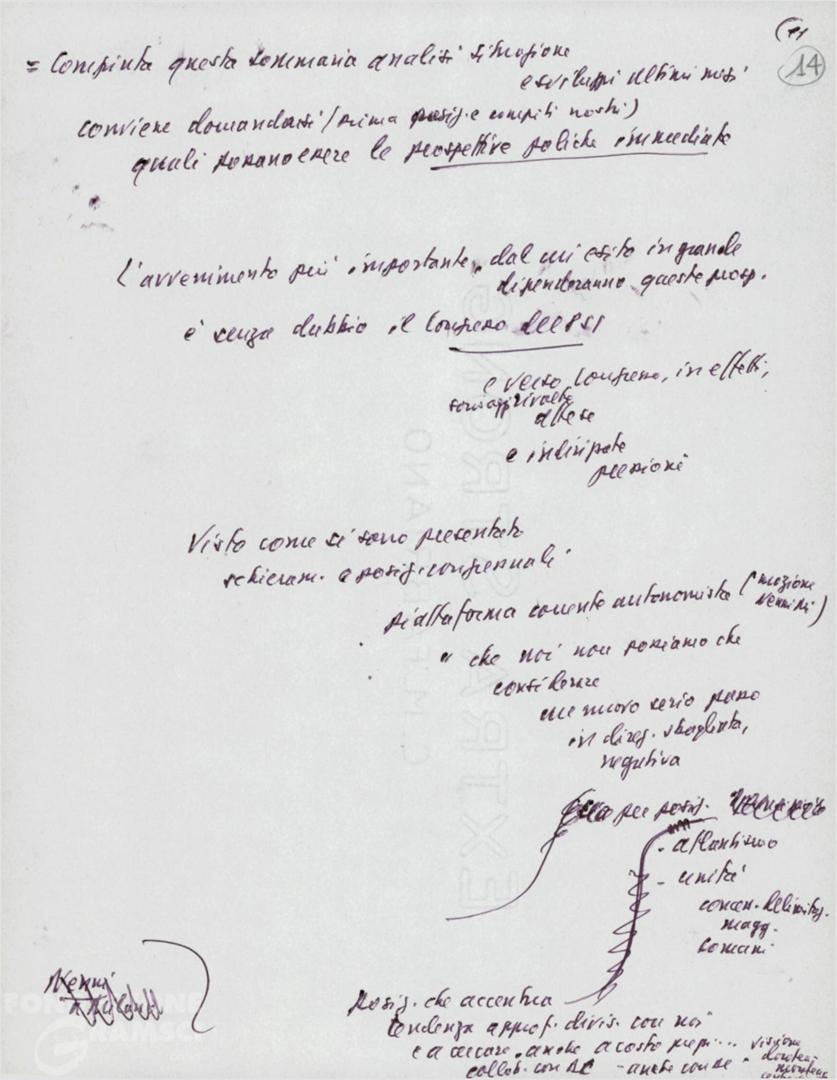 14
= Compiuta questa sommaria analisi situazione
e sviluppi ultimi mesi
conviene domandarsi (prima posiz. e compiti nostri)
quali possano essere le prospettive politiche immediate
L'avvenimento più importante, dal cui esito in grande
dipenderanno queste prosp.
è senza dubbio il Congresso del PSI
e verso Congresso, in effetti,
sono oggi rivolte
attese
e indirizzate
pressioni
Visto come si sono presentate
schieram. e posiz. congressuali
piattaforma corrente autonomista (mozione
Nenni)
che noi non possiamo che
considerare
un nuovo serio passo
in direz. sbagliata,
negativa
per posiz.
- atlantismo
- unità
concez. delimitaz.
magg.
Comuni
Nenni
posiz. che accentua
tendenza approf. divis. con noi
e a cercare, anche a costo
collab. con DC - anche con
visione
dorotea
FONDAZIONE
GRAMSCI
EXTRA STRONG
C. M. FABRIANO